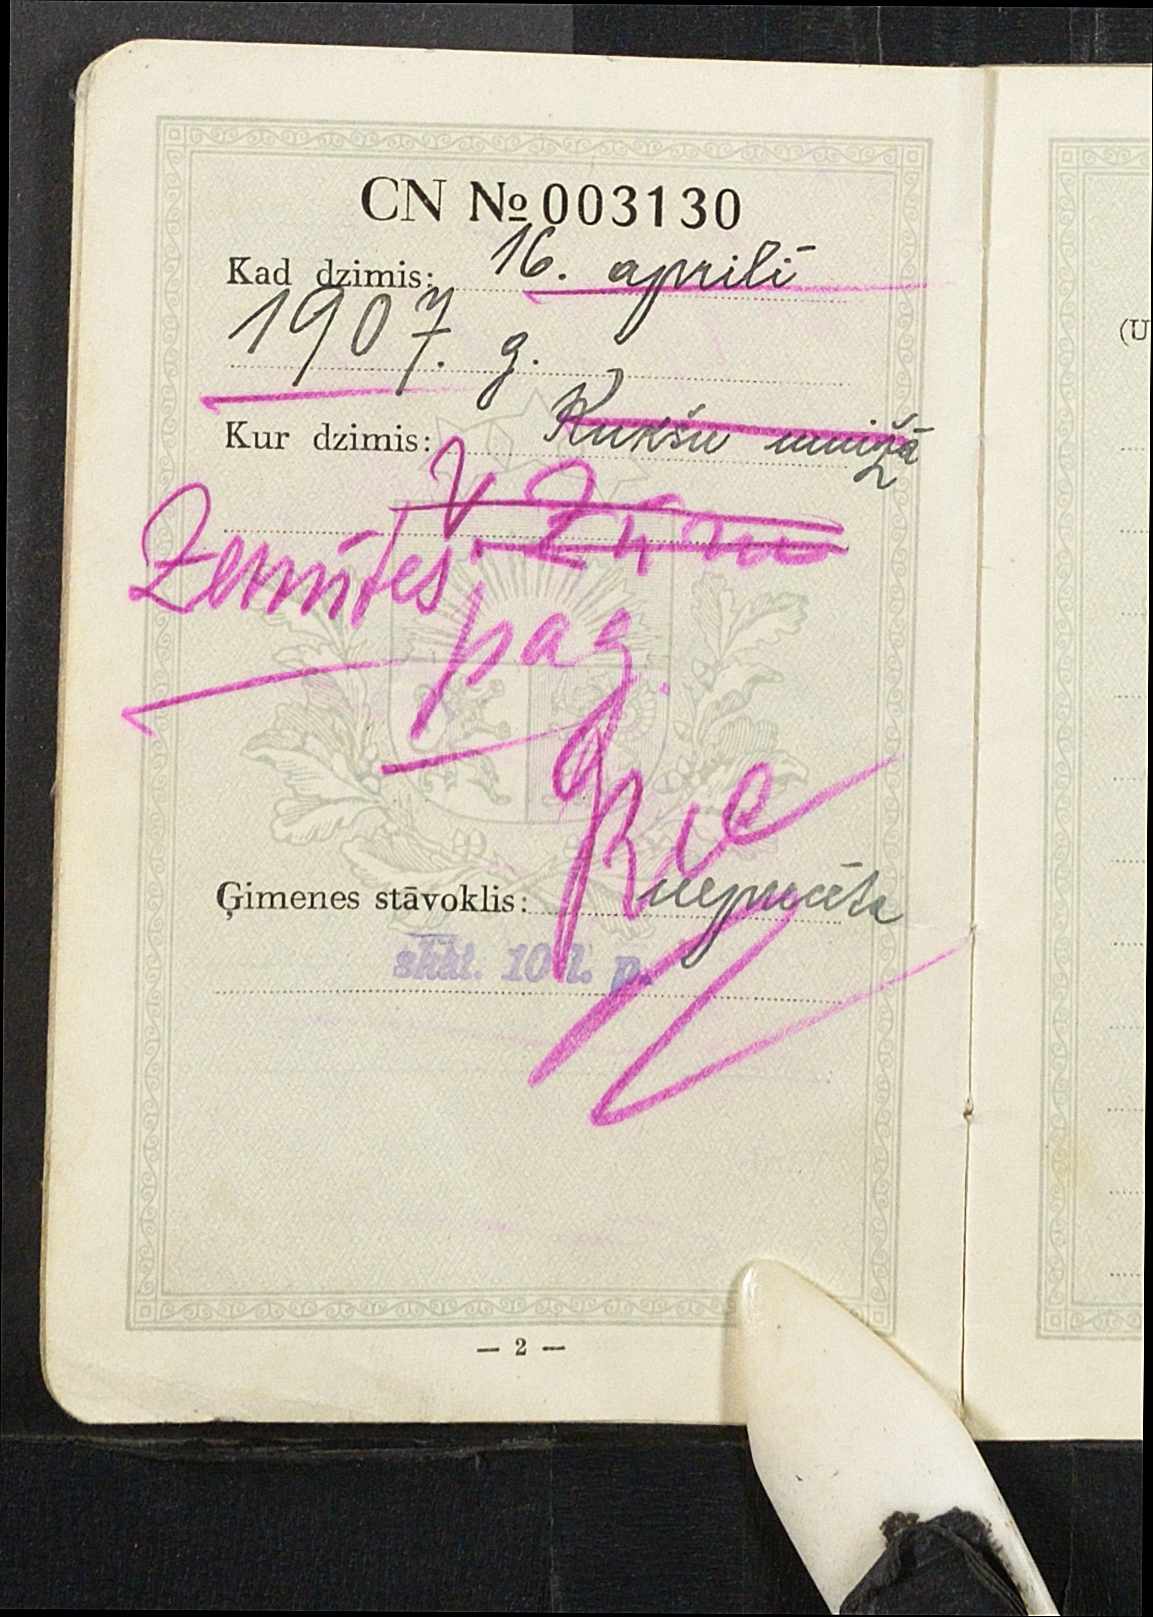 CN № 003130
Kad dzimis: 16. aprilī
1907. g.
Kur dzimis: Kukšu muižā
Zemītes
pag.
Ģimenes stāvoklis: neprecēta
skat. 10 l. p.
— 2 —
(U